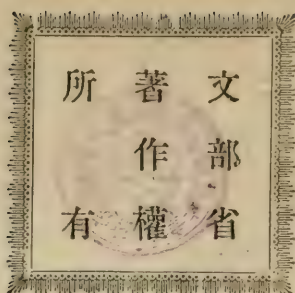 文部省
著作權
所有